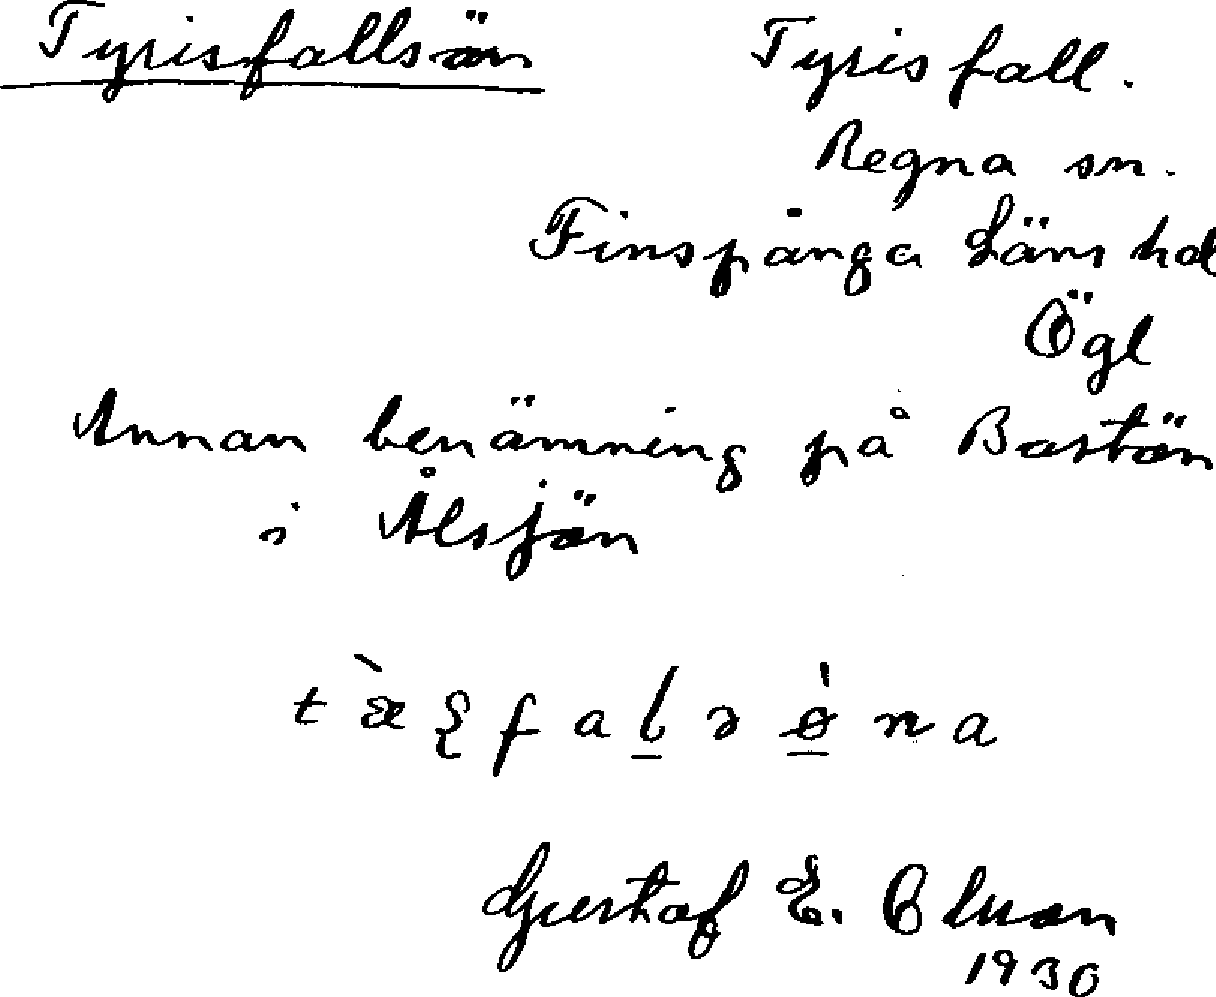 Tyrisfallsön Tyrisfall.
Regna sn.
Finspånga läns hd
Ögl
Annan benämning på Bastön
i Ålsjön
Gustaf E. Bluan
1930